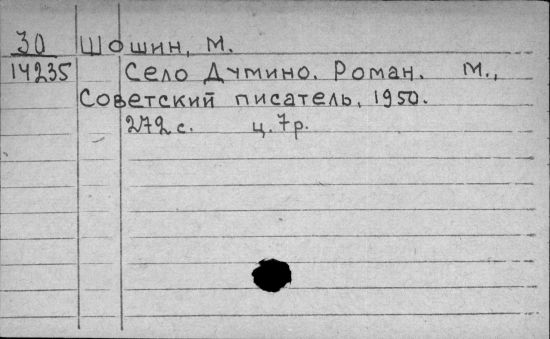 30 Шошин, М.
14235 Село Думино. Роман. М.,
Советский писатель, 1950.
272 с. ц. 7 р.